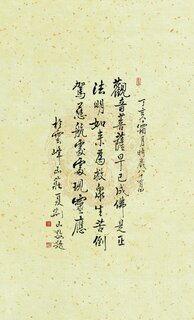 丁亥年霜月時歲八十有
觀音菩薩早已成佛是正
法明如來為救衆生苦倒
駕慈航處處現靈應
於雲峰山莊夏荊山敬題